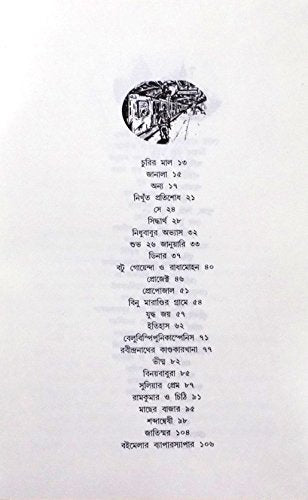 চুরির মাল ১৩
জানালা ১৫
অন্য ১৭
নিখুঁত প্রতিশোধ ২১
সে ২৪
সিদ্ধার্থ ২৮
নিধুবাবুর অভ্যাস ৩২
শুভ ২৬ জানুয়ারি ৩৩
ডিনার ৩৭
বটু গোয়েন্দা ও রাধামোহন ৪০
প্রোজেক্ট ৪৬
প্রোপোজাল ৫১
বিনু মারাণ্ডির গ্রামে ৫৪
যুদ্ধ জয় ৫৭
ইতিহাস ৬২
বেলুবিস্পিপুনিকাস্পেনিস ৭১
রবীন্দ্রনাথের কাণ্ডকারখানা ৭৭
ভীষ্ম ৮২
বিনয়বাবুরা ৮৫
সুলিয়ার প্রেম ৮৭
রামকুমার ও চিঠি ৯১
মাছের বাজার ৯৫
শব্দান্বেষী ৯৮
জাতিস্মর ১০৪
বইমেলার ব্যাপারস্যাপার ১০৬